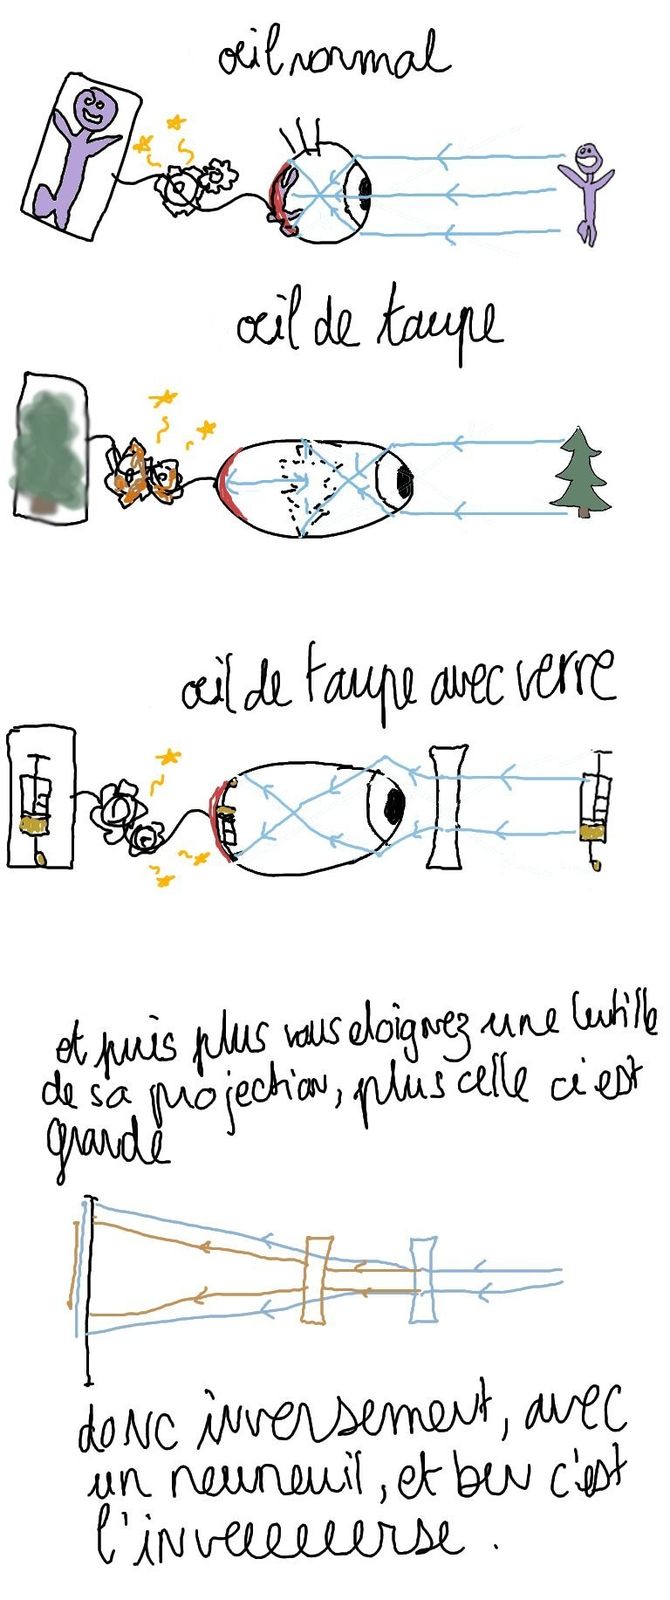 œil normal
œil de taupe
œil de taupe avec verre
et puis plus vous eloignez une lentille
de sa projection, plus celle ci est
grande
donc inversement, avec
un neuneuil, et ben c'est
l'inveeeeeerse.